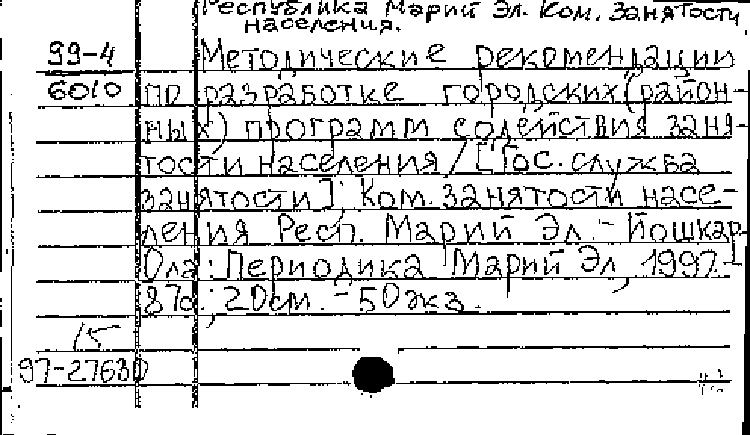 Республика Марий Эл. Ком. занятости
населения.
99-4 Методические рекомендации
6010 по разработке городских (район-
ных) программ содействия заня-
тости населения / [Гос. служба
занятости]; Ком. занятости насе-
ления Респ. Марий Эл. - Йошкар-
Ола: Периодика Марий Эл, 1997. -
87с.; 20см. - 50экз.
15
97-27630